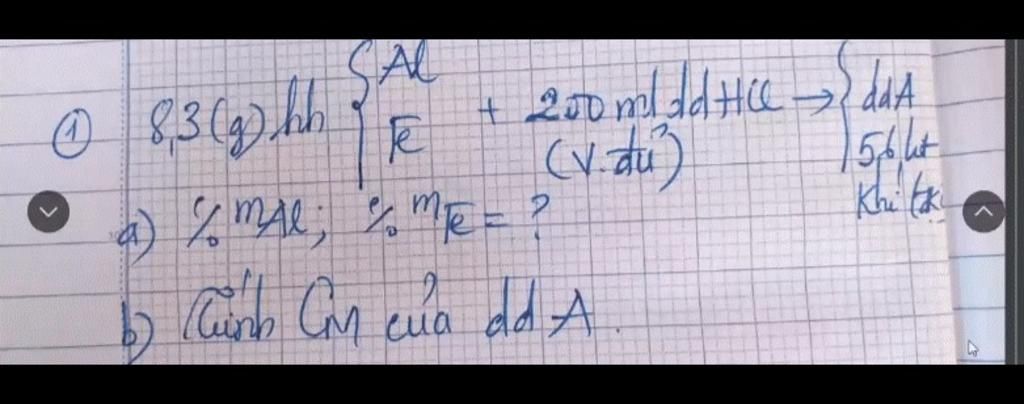 ① 8,3(g) hh { Al Fe + 200 ml dd HCl → { ddA
(v.đủ) 5,6 lít
khí (đk
a) % mAl; % mFe = ?
b) Tính CM của dd A.